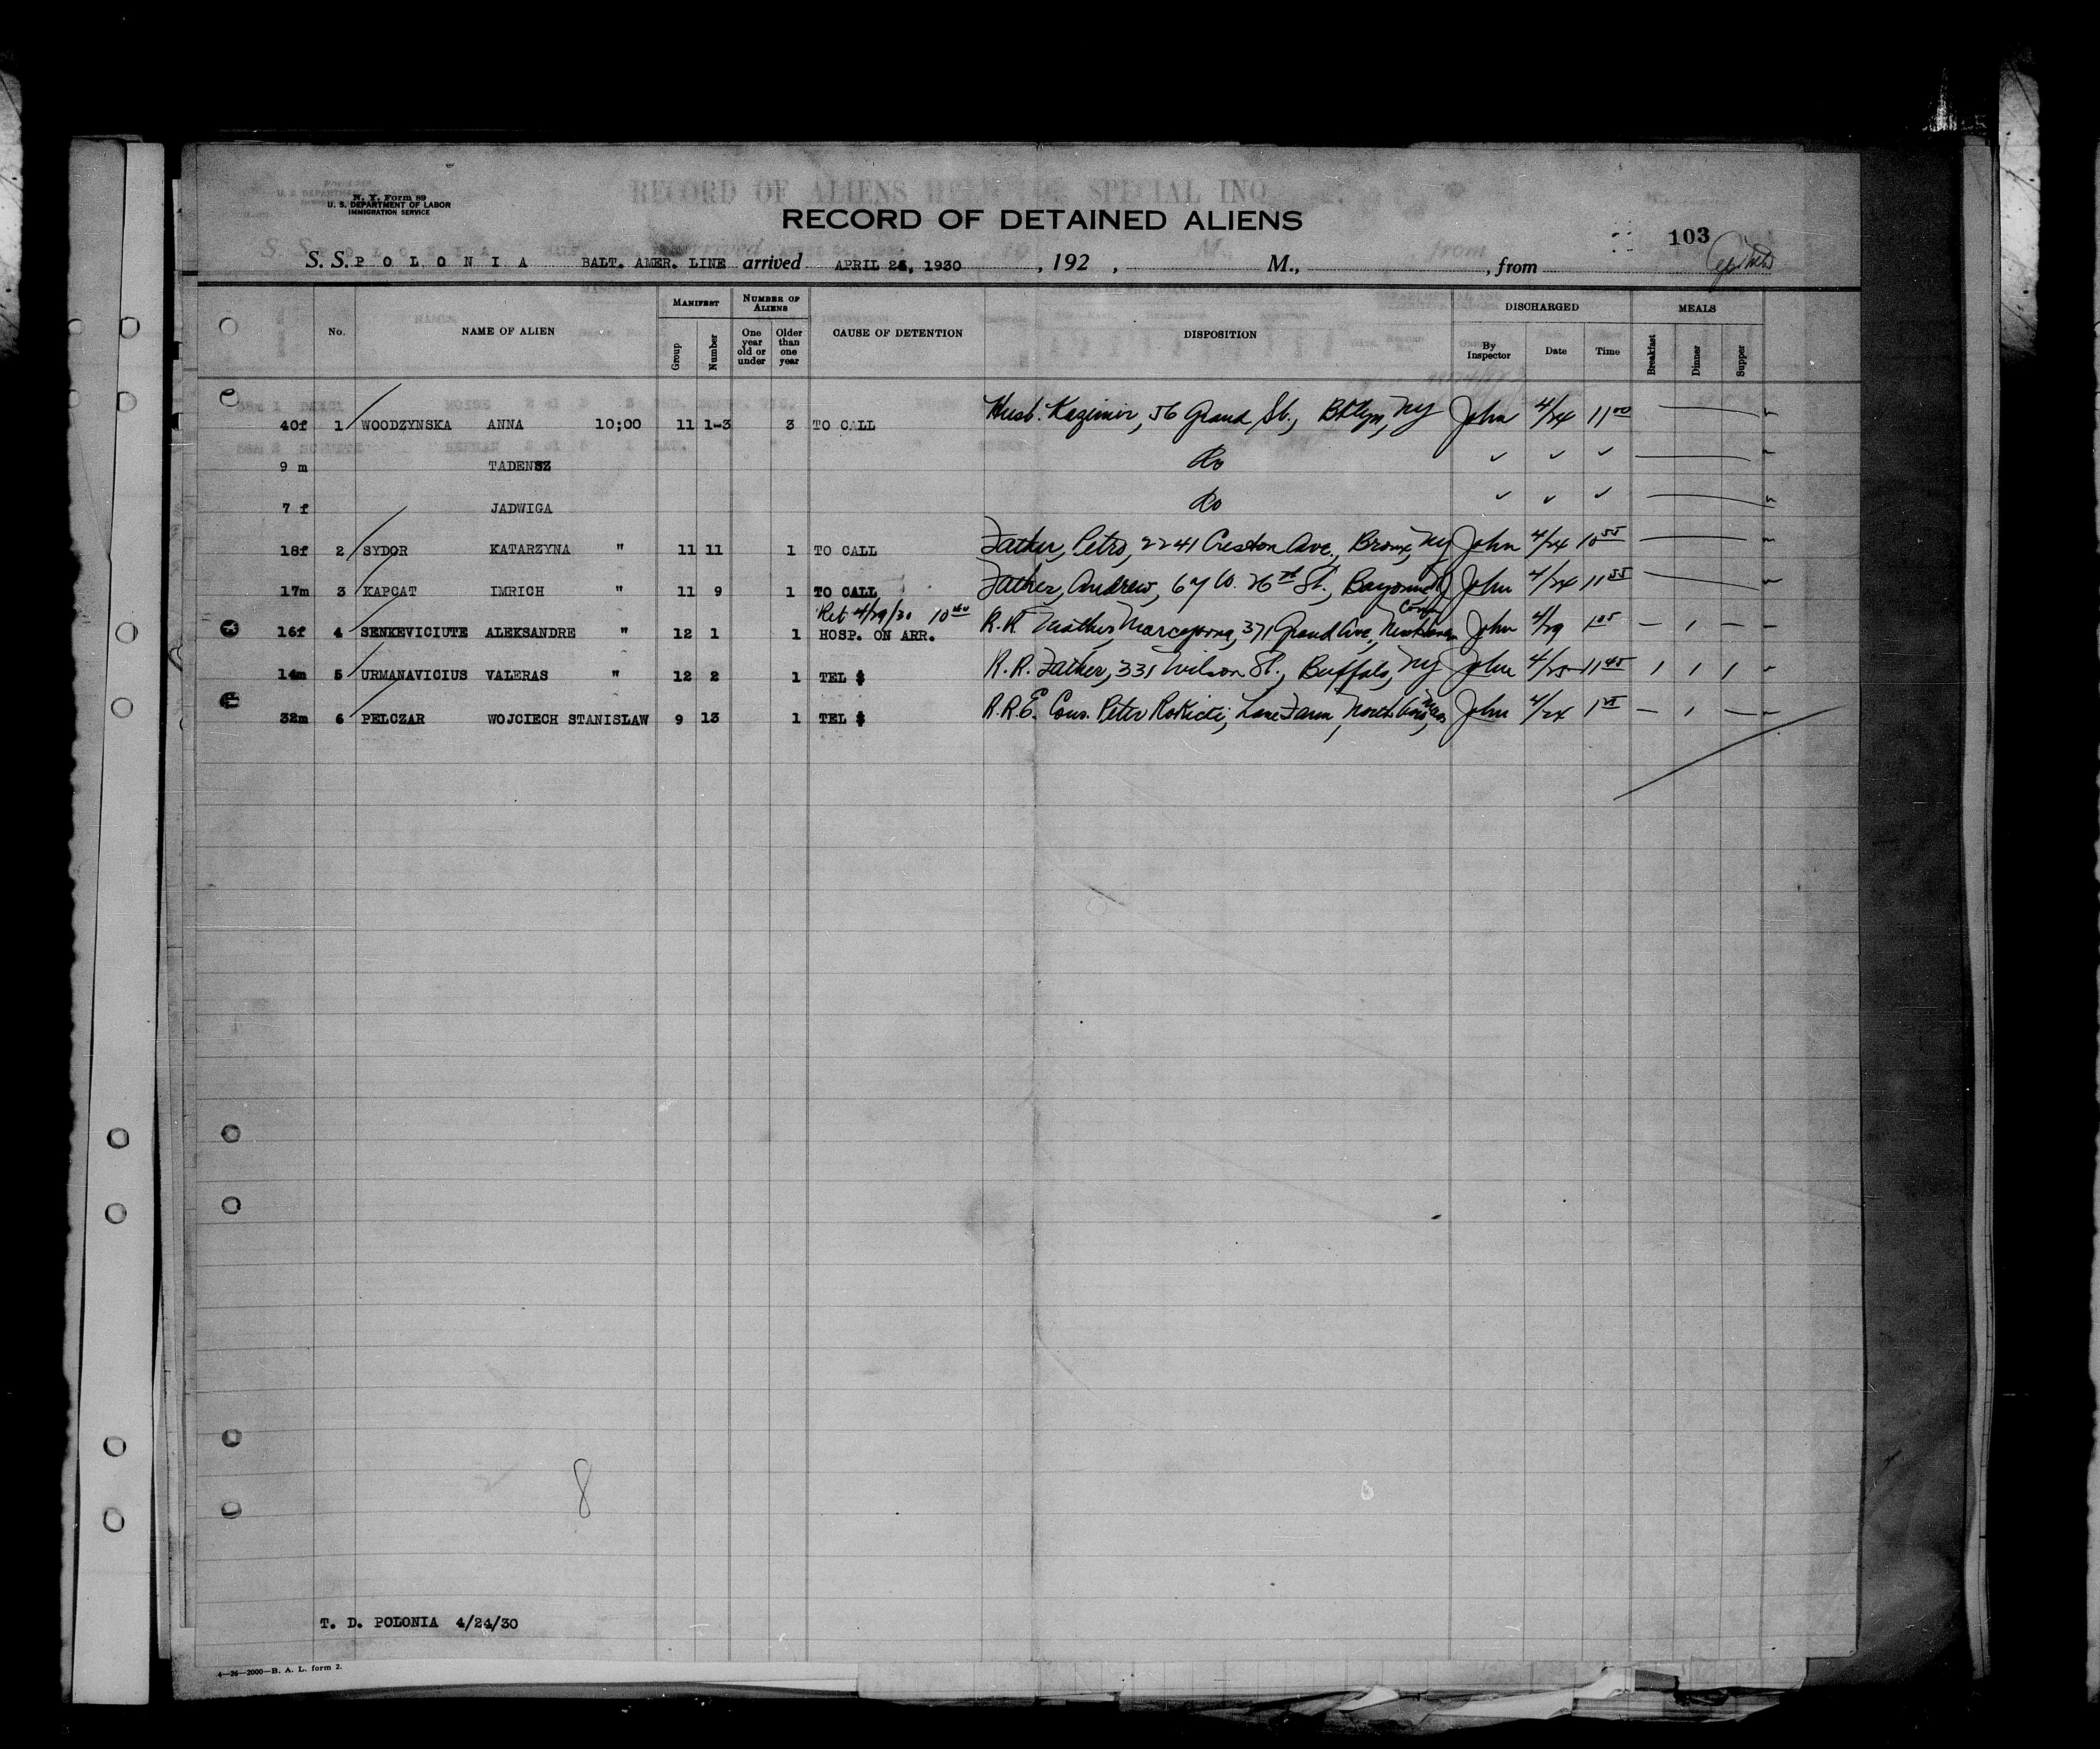 N. Y. Form 89
U. S. DEPARTMENT OF LABOR
IMMIGRATION SERVICE
RECORD OF ALIENS HELD SPECIAL INQ
RECORD OF DETAINED ALIENS
103
S. S. POLONIA BALT. AMER. LINE arrived APRIL 24, 1930, 192 , M., , from
No. NAME OF ALIEN MANIFEST Group Number NUMBER OF ALIENS One year old or under Older than one year CAUSE OF DETENTION DISPOSITION DISCHARGED By Inspector Date Time MEALS Breakfast Dinner Supper
40f 1 WOODZYNSKA ANNA 10;00 11 1-3 3 TO CALL Husb. Kazimir, 56 Grand St., Bklyn, NY John 4/24 11 00
9 m TADENSZ Do ✓ ✓ ✓
7 f JADWIGA Do ✓ ✓ ✓
18f 2 SYDOR KATARZYNA " 11 11 1 TO CALL Father, Petro, 2241 Creston Ave., Bronx, NY John 4/24 10 55
17m 3 KAPCAT IMRICH " 11 9 1 TO CALL Father, Andrew, 67 W. 26th St., Bayonne NJ John 4/24 11 55
Ret 4/29/30 10 00
16f 4 SENKEVICIUTE ALEKSANDRE " 12 1 1 HOSP. ON ARR. R.R. Mother, 371 Grand Ave., New Haven Conn John 4/29 1 05
14m 5 URMANAVICIUS VALERAS " 12 2 1 TEL $ R.R. Father, 331 Wilson St., Buffalo, NY John 4/25 11 45
32m 6 PELCZAR WOJCIECH STANISLAW 9 13 1 TEL $ R.R.E. Cous. Peter Rokicki, Lane Farm, Northboro, Mass John 4/24
8
T. D. POLONIA 4/24/30
4—26—2000—B. A. L. form 2.